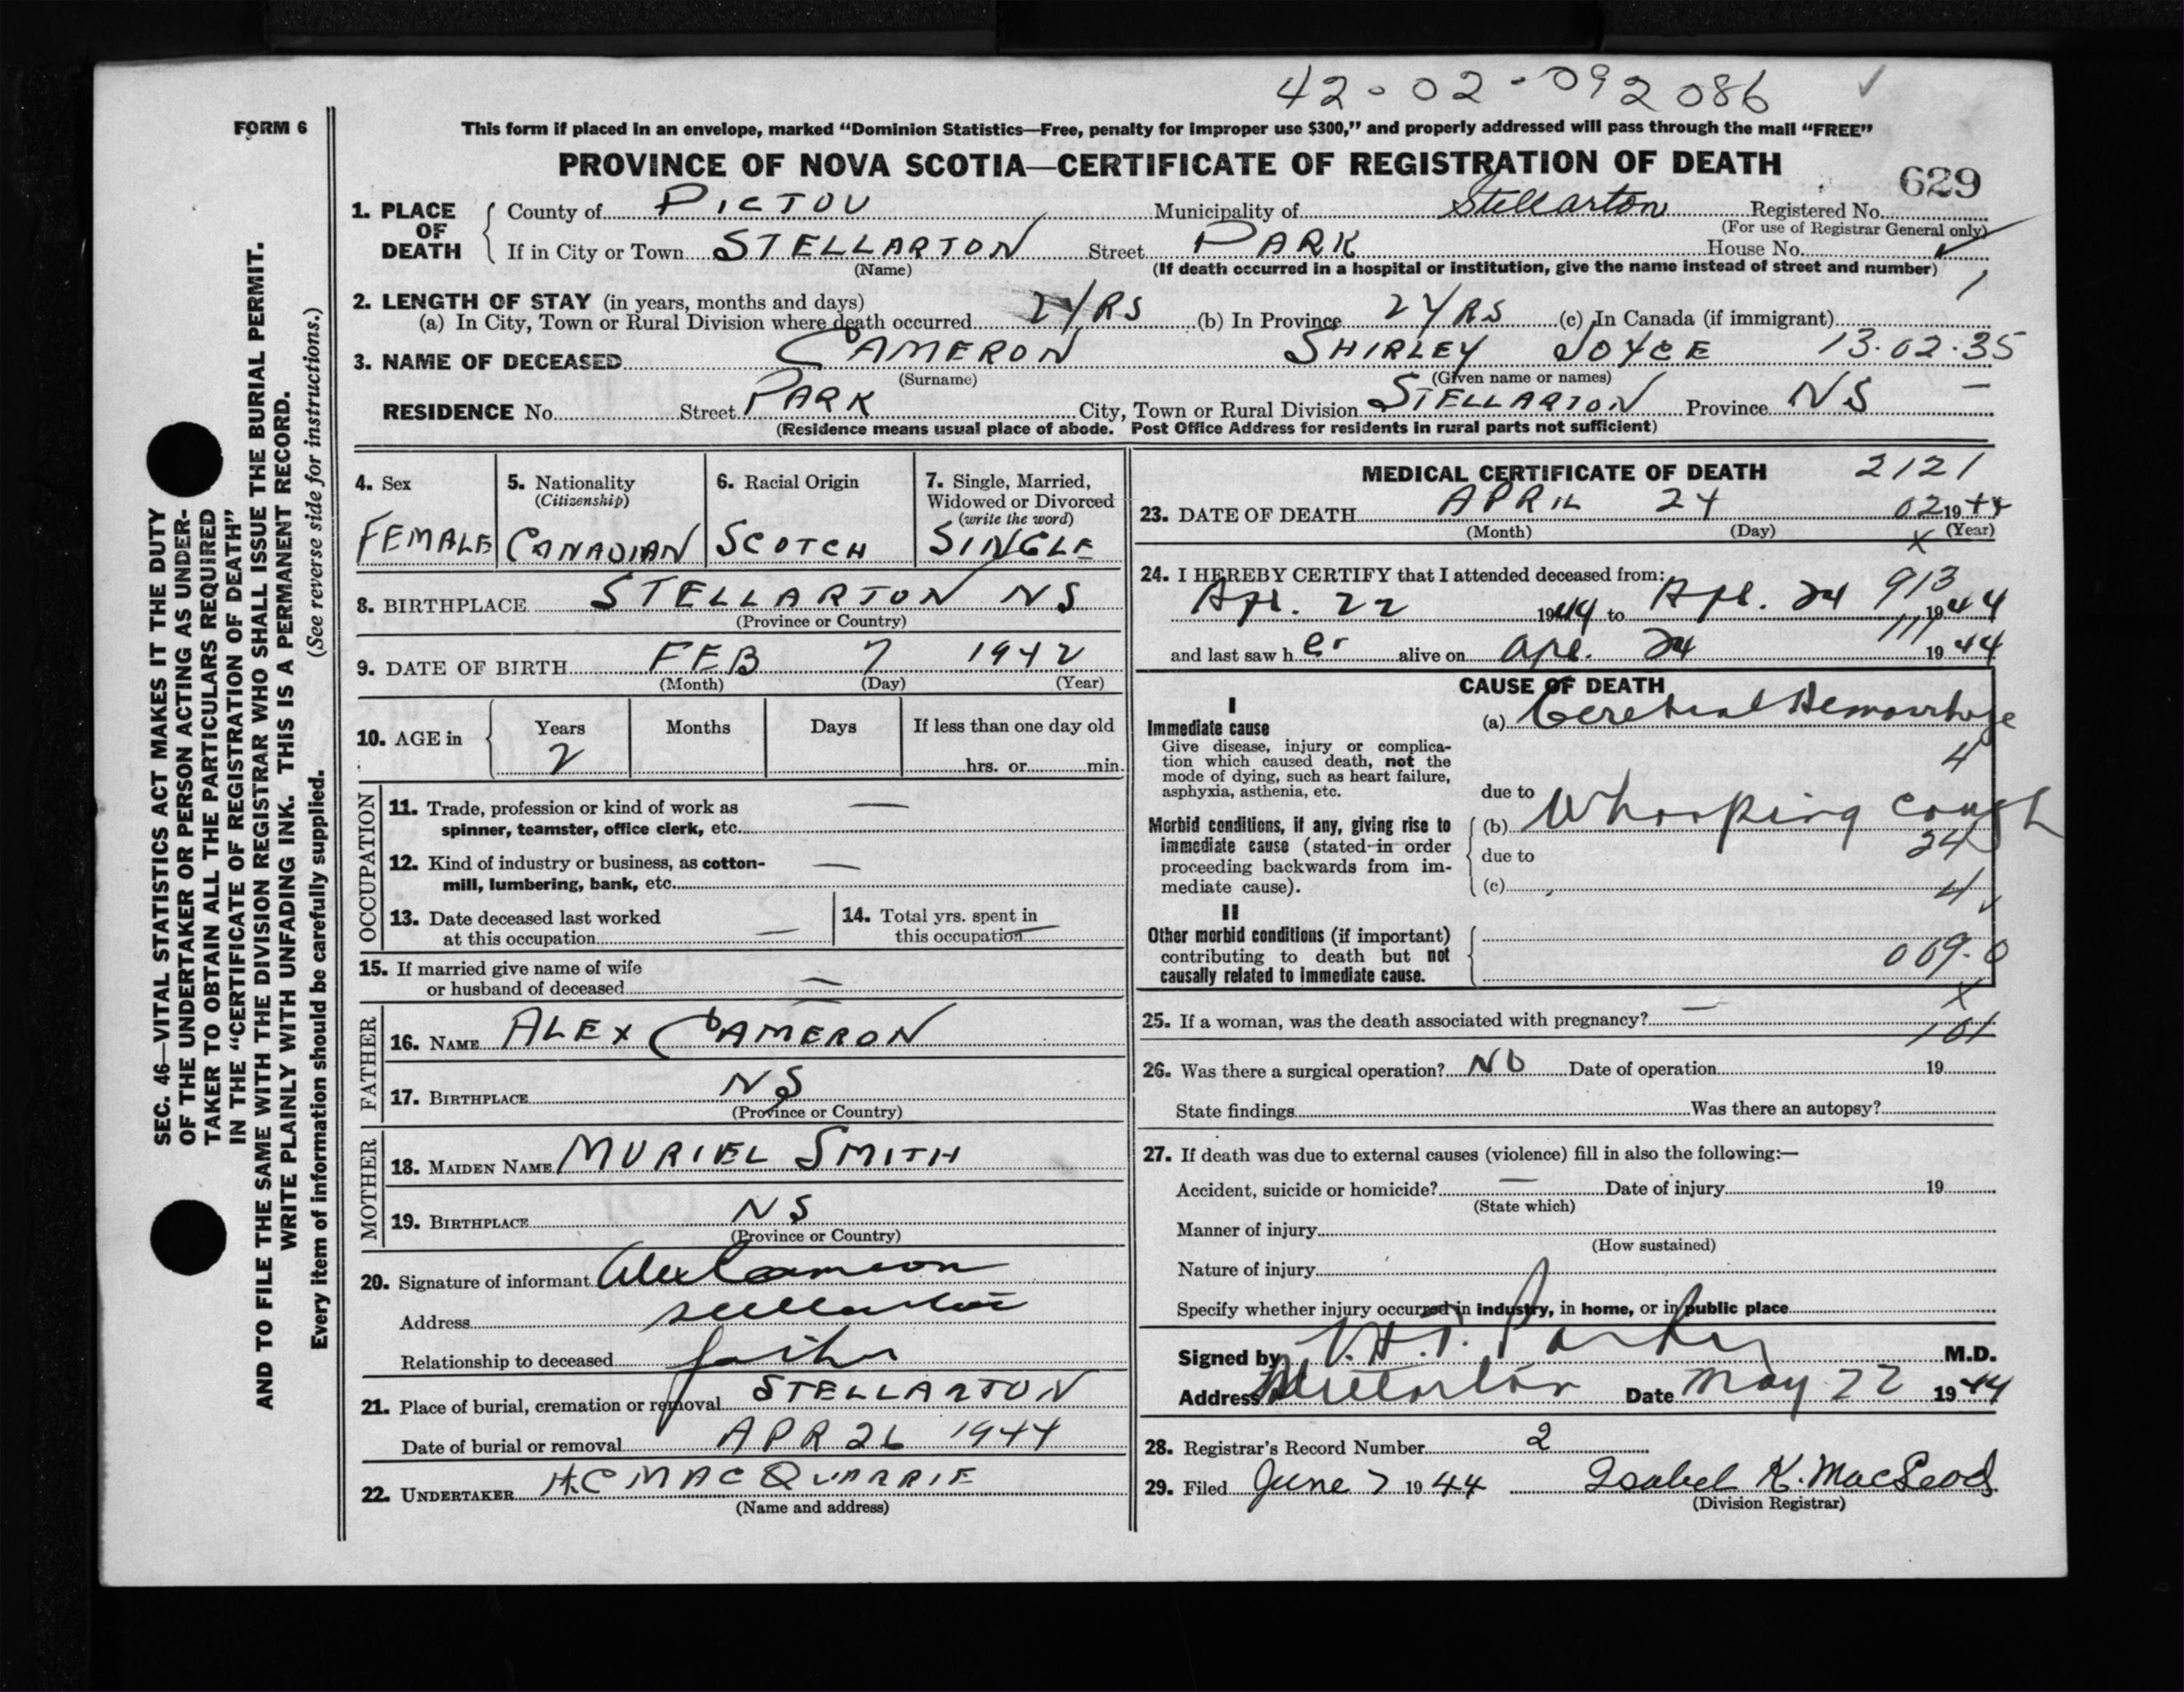 42-02-092086
FORM 6
This form if placed in an envelope, marked “Dominion Statistics—Free, penalty for improper use $300,” and properly addressed will pass through the mail “FREE”
PROVINCE OF NOVA SCOTIA—CERTIFICATE OF REGISTRATION OF DEATH
629
1. PLACE OF DEATH
County of PICTOU Municipality of Stellarton Registered No.
(For use of Registrar General only)
If in City or Town STELLARTON Street PARK House No.
(Name) (If death occurred in a hospital or institution, give the name instead of street and number)
1
2. LENGTH OF STAY (in years, months and days)
(a) In City, Town or Rural Division where death occurred 2 YRS (b) In Province 2 YRS (c) In Canada (if immigrant)
3. NAME OF DECEASED CAMERON SHIRLEY JOYCE 13.02.35
(Surname) (Given name or names)
RESIDENCE No. Street PARK City, Town or Rural Division STELLARTON Province NS —
(Residence means usual place of abode. Post Office Address for residents in rural parts not sufficient)
4. Sex FEMALE
5. Nationality (Citizenship) CANADIAN
6. Racial Origin SCOTCH
7. Single, Married, Widowed or Divorced (write the word) SINGLE
8. BIRTHPLACE STELLARTON NS
(Province or Country)
9. DATE OF BIRTH FEB 7 1942
(Month) (Day) (Year)
10. AGE in Years Months Days If less than one day old
2 hrs. or min.
OCCUPATION
11. Trade, profession or kind of work as spinner, teamster, office clerk, etc. —
12. Kind of industry or business, as cotton-mill, lumbering, bank, etc. —
13. Date deceased last worked at this occupation —
14. Total yrs. spent in this occupation —
15. If married give name of wife or husband of deceased —
FATHER
16. NAME ALEX CAMERON
17. BIRTHPLACE NS
(Province or Country)
MOTHER
18. MAIDEN NAME MURIEL SMITH
19. BIRTHPLACE NS
(Province or Country)
20. Signature of informant Alex Cameron
Address Stellarton
Relationship to deceased father
21. Place of burial, cremation or removal STELLARTON
Date of burial or removal APR 26 1944
22. UNDERTAKER H.C MACQUARRIE
(Name and address)
MEDICAL CERTIFICATE OF DEATH 2121
23. DATE OF DEATH APRIL 24 02 1944
(Month) (Day) (Year)
X
24. I HEREBY CERTIFY that I attended deceased from: 913
Apl. 22 1944 to Apl. 24 1944
111
and last saw h er alive on Apl. 24 1944
CAUSE OF DEATH
I
Immediate cause
Give disease, injury or complication which caused death, not the mode of dying, such as heart failure, asphyxia, asthenia, etc.
(a) Cerebral Hemorrhage
4
due to
Morbid conditions, if any, giving rise to immediate cause (stated in order proceeding backwards from immediate cause).
(b) Whooping cough
24
due to
(c)
4
II
Other morbid conditions (if important) contributing to death but not causally related to immediate cause.
009.0
X
25. If a woman, was the death associated with pregnancy? —
101
26. Was there a surgical operation? NO Date of operation 19
State findings Was there an autopsy?
27. If death was due to external causes (violence) fill in also the following:—
Accident, suicide or homicide? — Date of injury 19
(State which)
Manner of injury
(How sustained)
Nature of injury
Specify whether injury occurred in industry, in home, or in public place
Signed by V.H.T. Parker M.D.
Address Stellarton Date May 22 1944
28. Registrar's Record Number 2
29. Filed June 7 1944 Isabel K. MacLeod
(Division Registrar)
SEC. 46—VITAL STATISTICS ACT MAKES IT THE DUTY
OF THE UNDERTAKER OR PERSON ACTING AS UNDER-
TAKER TO OBTAIN ALL THE PARTICULARS REQUIRED
IN THE “CERTIFICATE OF REGISTRATION OF DEATH”
AND TO FILE THE SAME WITH THE DIVISION REGISTRAR WHO SHALL ISSUE THE BURIAL PERMIT.
WRITE PLAINLY WITH UNFADING INK. THIS IS A PERMANENT RECORD.
Every item of information should be carefully supplied. (See reverse side for instructions.)